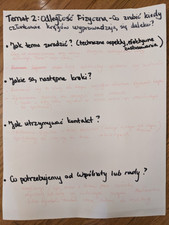 Temat 2: Odległość fizyczna - Co zrobić kiedy
członkowie kręgów wyprowadzają się daleko?
• Jak temu zaradzić? (techniczne aspekty, efektywne
• Jakie są następne kroki?
• Jak utrzymywać kontakt?
• Co potrzebujemy od Wspólnoty lub rady?